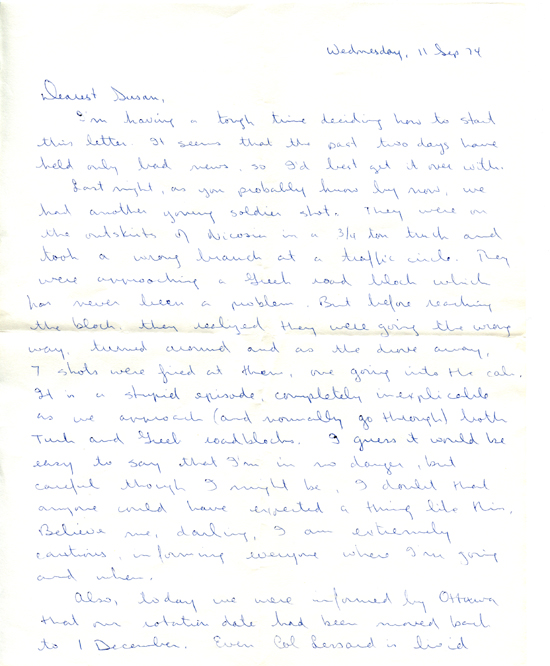 Wednesday, 11 Sep 74
Dearest Susan,
I'm having a tough time deciding how to start
this letter. It seems that the past two days have
held only bad news, so I'd best get it over with.
Last night, as you probably know by now, we
had another young soldier shot. They were on
the outskirts of Nicosia in a 3/4 ton truck and
took a wrong branch at a traffic circle. They
were approaching a Greek road block which
has never been a problem. But before reaching
the block, they realized they were going the wrong
way, turned around and as the drove away,
7 shots were fired at them, one going into the cab.
It is a stupid episode, completely inexplicable
as we approach (and normally go through) both
Turk and Greek roadblocks. I guess it would be
easy to say that I'm in no danger, but
careful though I might be, I doubt that
anyone could have expected a thing like this.
Believe me, darling, I am extremely
cautious, informing everyone where I'm going
and when.
Also, today we were informed by Ottawa
that our rotation date had been moved back
to 1 December. Even Col Lessard is livid